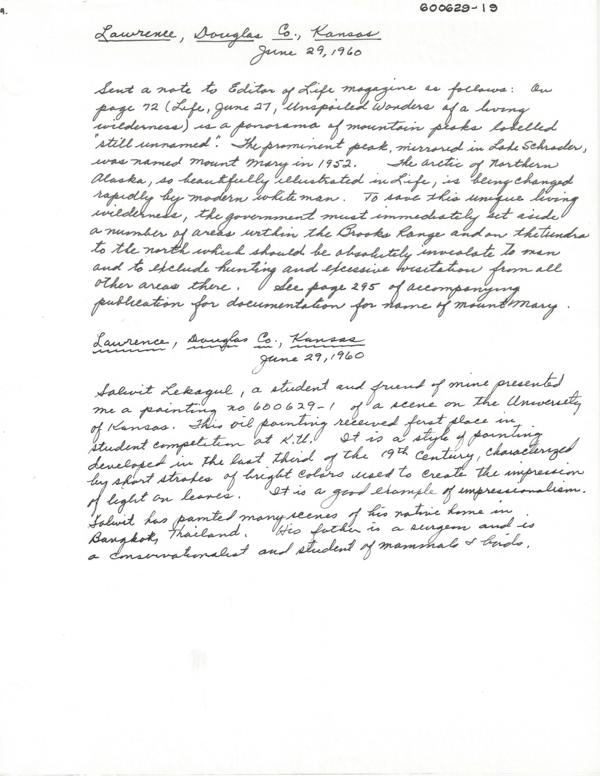 9.
600629-19
Lawrence, Douglas Co., Kansas
June 29, 1960
Sent a note to Editor of Life magazine as follows: On
page 72 (Life, June 27, Unspoiled Wonders of a living
wilderness) is a panorama of mountain peaks labelled
"still unnamed". The prominent peak, mirrored in Lake Schrader,
was named Mount Mary in 1952. The Arctic of Northern
Alaska, so beautifully illustrated in Life, is being changed
rapidly by modern white man. To save this unique living
wilderness, the government must immediately set aside
a number of areas within the Brooks Range and on the tundra
to the north which should be absolutely inviolate to man
and to exclude hunting and excessive visitation from all
other areas there. See page 295 of accompanying
publication for documentation for name of Mount Mary.
Lawrence, Douglas Co., Kansas
June 29, 1960
Solwit Lekagul, a student and friend of mine presented
me a painting no 600629-1 of a scene on the University
of Kansas. This oil painting received first place in
student competition at K.U. It is a style of painting
developed in the last third of the 19th Century, characterized
by short strokes of bright colors used to create the impression
of light on leaves. It is a good example of impressionalism.
Solwit has painted many scenes of his native home in
Bangkok, Thailand. His father is a surgeon and is
a conservationalist and student of mammals & birds.